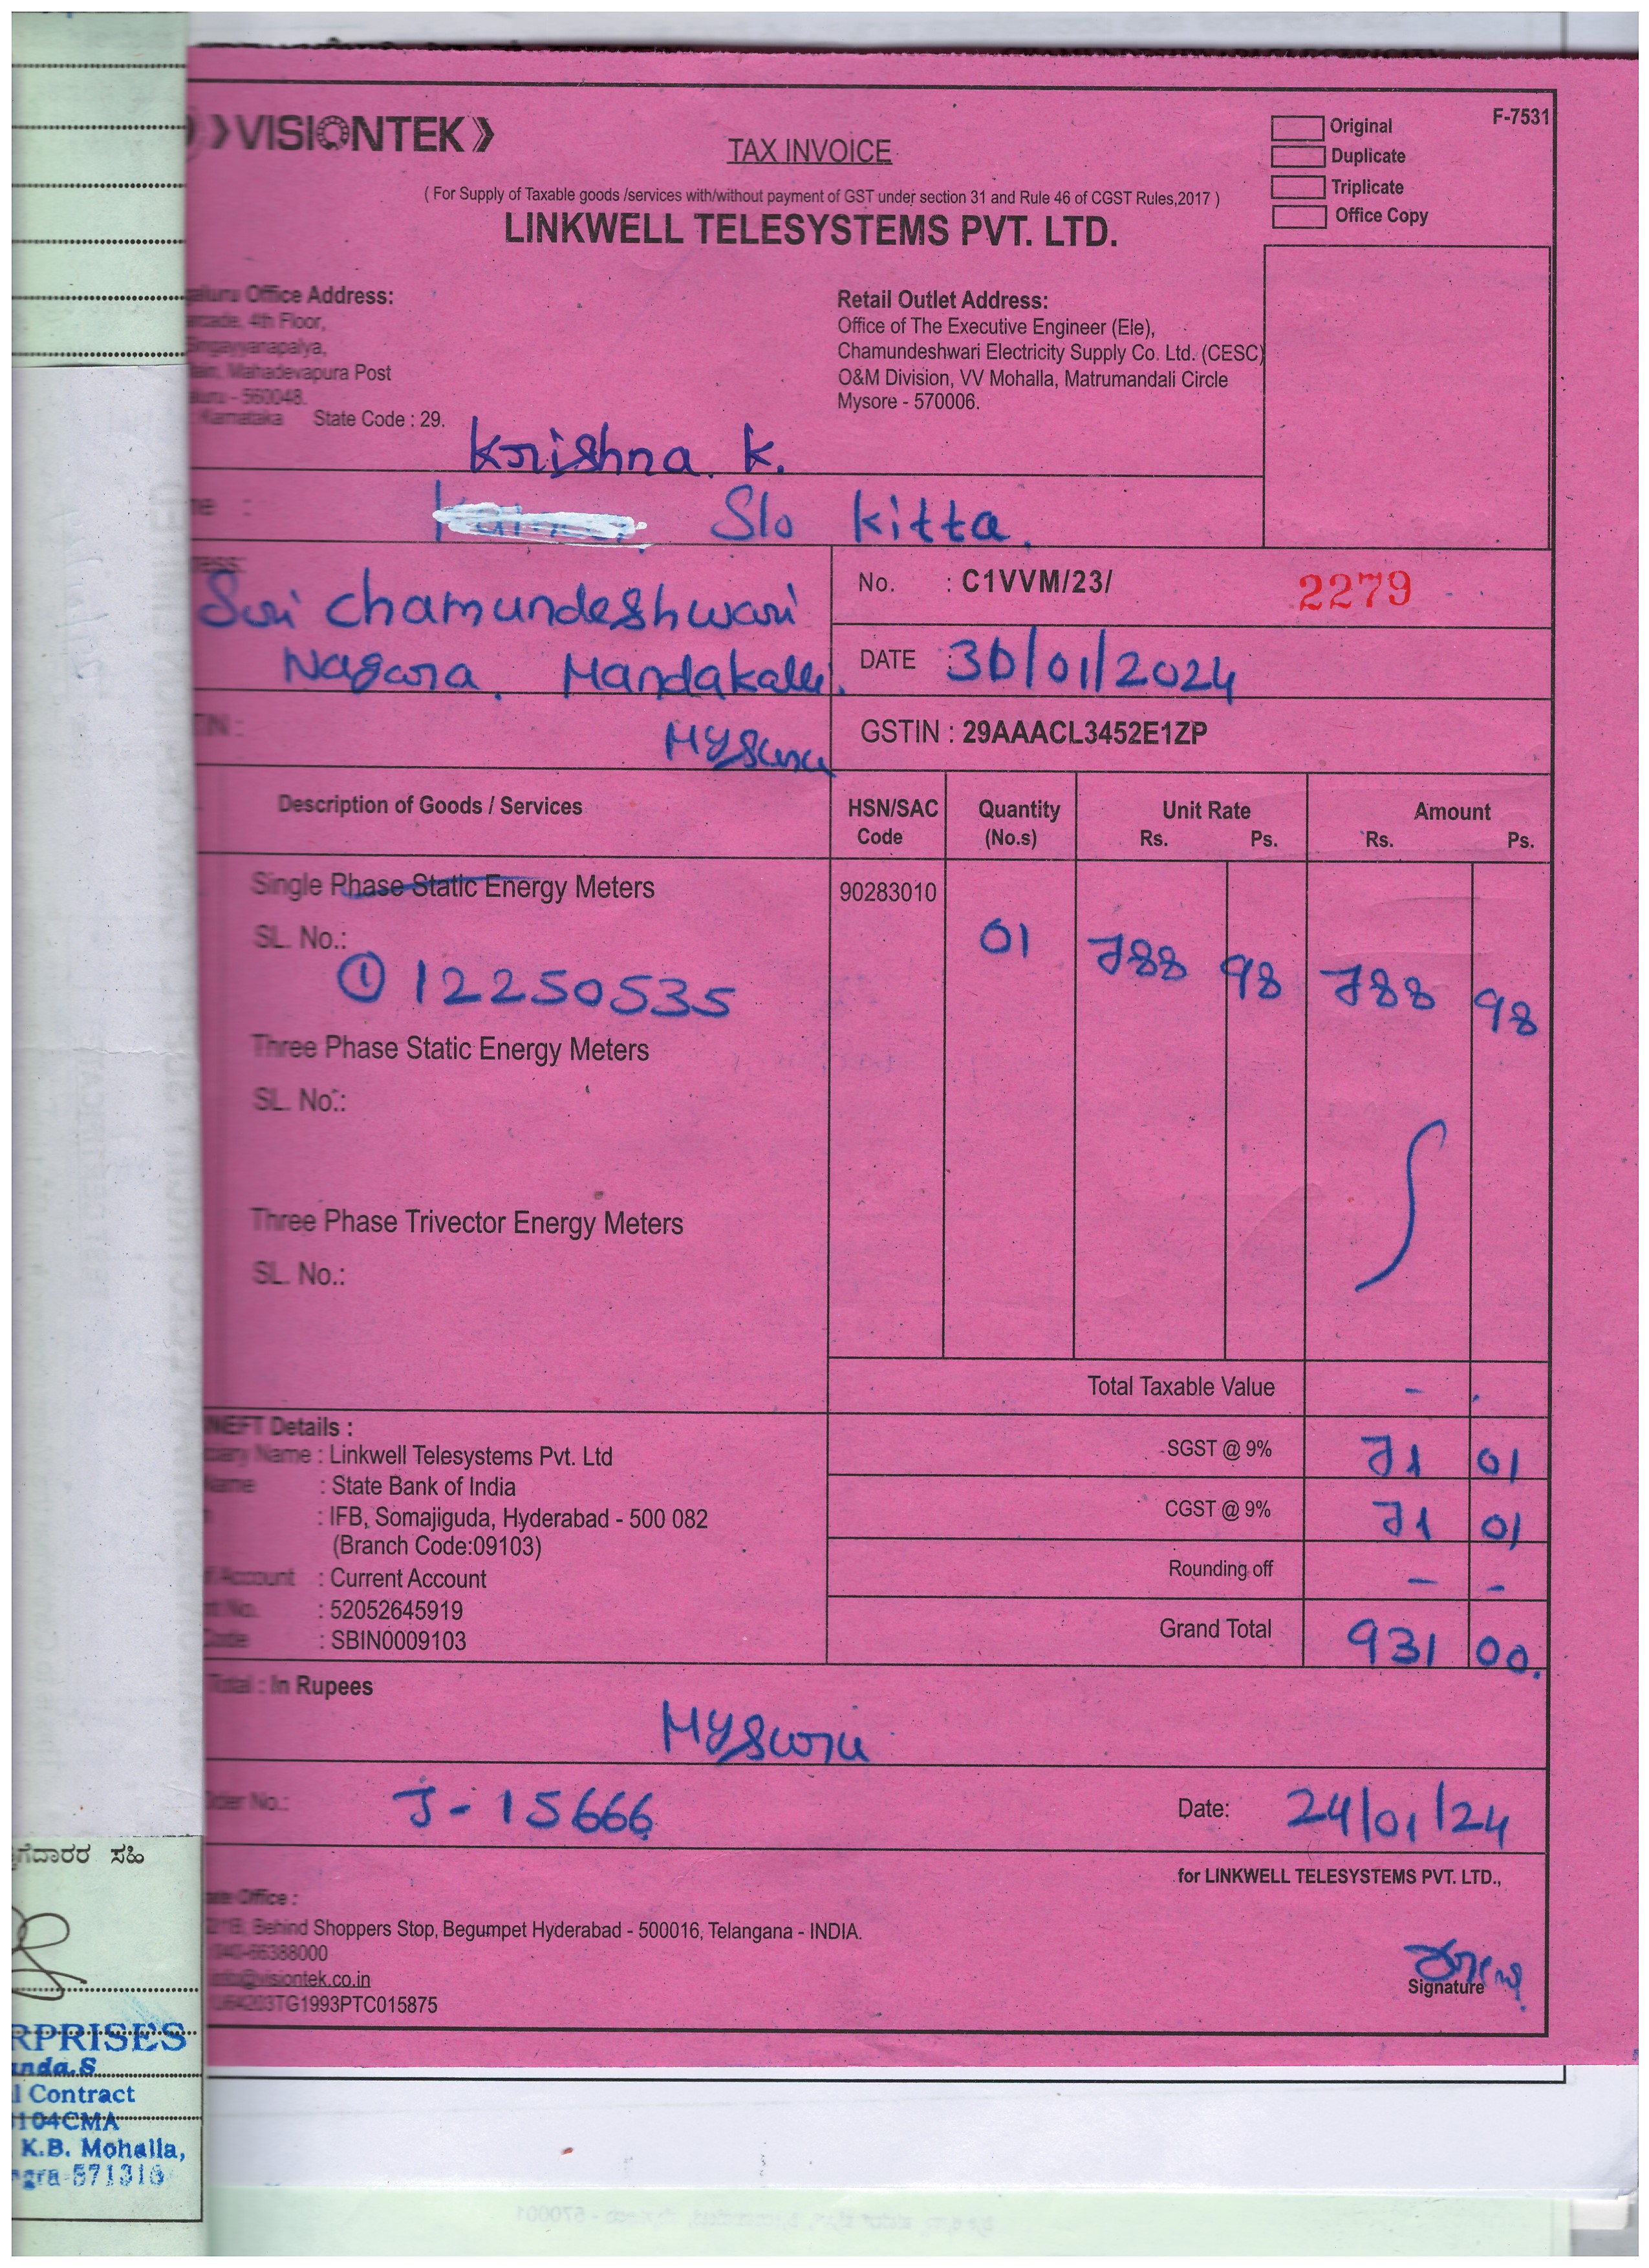 VISIONTEK
TAX INVOICE
Original
Duplicate
Triplicate
Office Copy
F-7531
( For Supply of Taxable goods /services with/without payment of GST under section 31 and Rule 46 of CGST Rules,2017 )
LINKWELL TELESYSTEMS PVT. LTD.
Office Address:
4th Floor,
Mahadevapura Post
- 560048.
Karnataka State Code : 29.
Retail Outlet Address:
Office of The Executive Engineer (Ele),
Chamundeshwari Electricity Supply Co. Ltd. (CESC)
O&M Division, VV Mohalla, Matrumandali Circle
Mysore - 570006.
Krishna. K.
: S/o Kitta.
Sri Chamundeshwari
Nagara. Mandakalli.
Mysuru
No. : C1VVM/23/ 2279
DATE : 30/01/2024
GSTIN : 29AAACL3452E1ZP
Description of Goods / Services HSN/SAC Code Quantity (No.s) Unit Rate Rs. Ps. Amount Rs. Ps.
Single Phase Static Energy Meters 90283010
SL. No.: 01 788 98 788 98
① 12250535
Three Phase Static Energy Meters
SL. No.:
Three Phase Trivector Energy Meters
SL. No.:
Total Taxable Value - .
SGST @ 9% 71 01
CGST @ 9% 71 01
Rounding off - -
Grand Total 931 00.
NEFT Details :
Name : Linkwell Telesystems Pvt. Ltd
Name : State Bank of India
: IFB, Somajiguda, Hyderabad - 500 082
(Branch Code:09103)
Account : Current Account
No. : 52052645919
Code : SBIN0009103
Total : In Rupees
Mysuru
No.: J-15666 Date: 24/01/24
for LINKWELL TELESYSTEMS PVT. LTD.,
Office :
Behind Shoppers Stop, Begumpet Hyderabad - 500016, Telangana - INDIA.
040-66388000
@visiontek.co.in
TG1993PTC015875
Signature
ಸಹಿ
RPRISES
nda.S
l Contract
104CMA
K.B. Mohalla,
571313